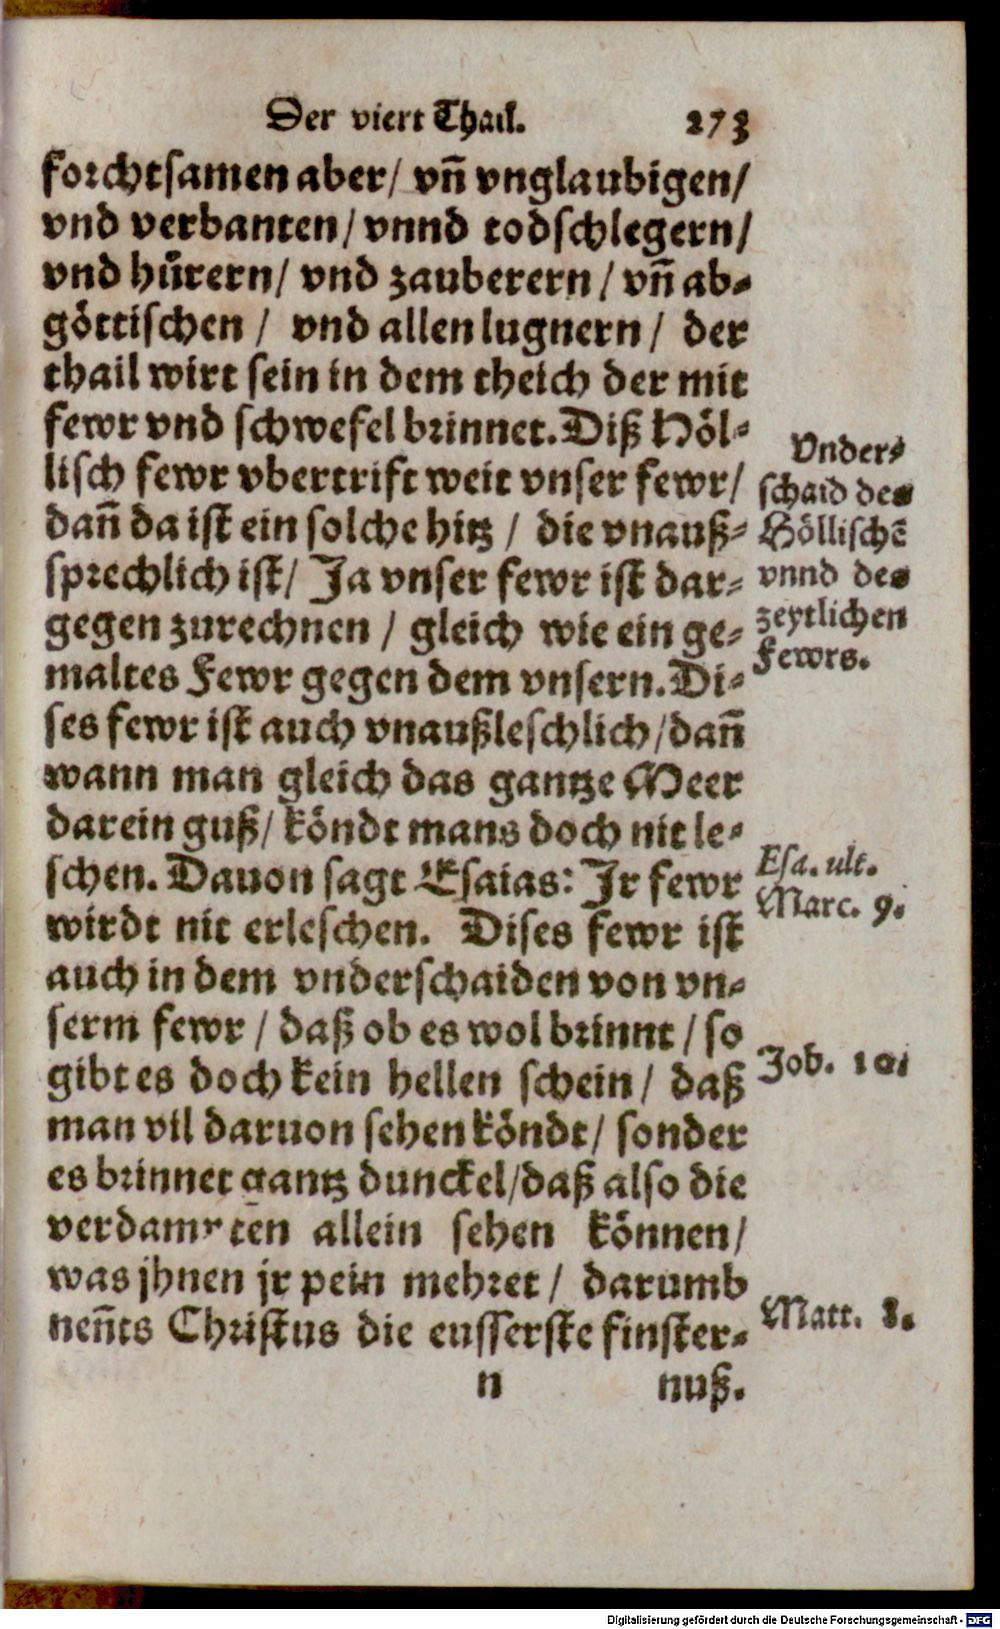 Der viert Thail. 273
forchtsamen aber/ vñ vnglaubigen/
vnd verbanten/ vnnd todschlegern/
vnd hůrern/ vnd zauberern/ vñ ab-
göttischen/ vnd allen lugnern/ der
thail wirt sein in dem theich der mit
fewr vnd schwefel brinnet. Diß Höl-
lisch fewr vbertrift weit vnser fewr/
dañ da ist ein solche hitz/ die vnauß-
sprechlich ist/ Ja vnser fewr ist dar-
gegen zurechnen/ gleich wie ein ge-
maltes Fewr gegen dem vnsern. Di-
ses fewr ist auch vnaußleschlich/ dañ
wann man gleich das gantze Meer
darein guß/ köndt mans doch nit le-
schen. Dauon sagt Esaias: Jr fewr
wirdt nit erleschen. Dises fewr ist
auch in dem vnderschaiden von vn-
serm fewr/ daß ob es wol brinnt/ so
gibt es doch kein hellen schein/ daß
man vil daruon sehen köndt/ sonder
es brinnet gantz dunckel/ daß also die
verdampten allein sehen können/
was jhnen jr pein mehret/ darumb
neñts Christus die eusserste finster-
n nuß.
Vnder-
schaid des
Höllischẽ
vnnd des
zeytlichen
Fewrs.
Esa. ult.
Marc. 9.
Job. 10.
Matt. 8.
Digitalisierung gefördert durch die Deutsche Forschungsgemeinschaft - DFG